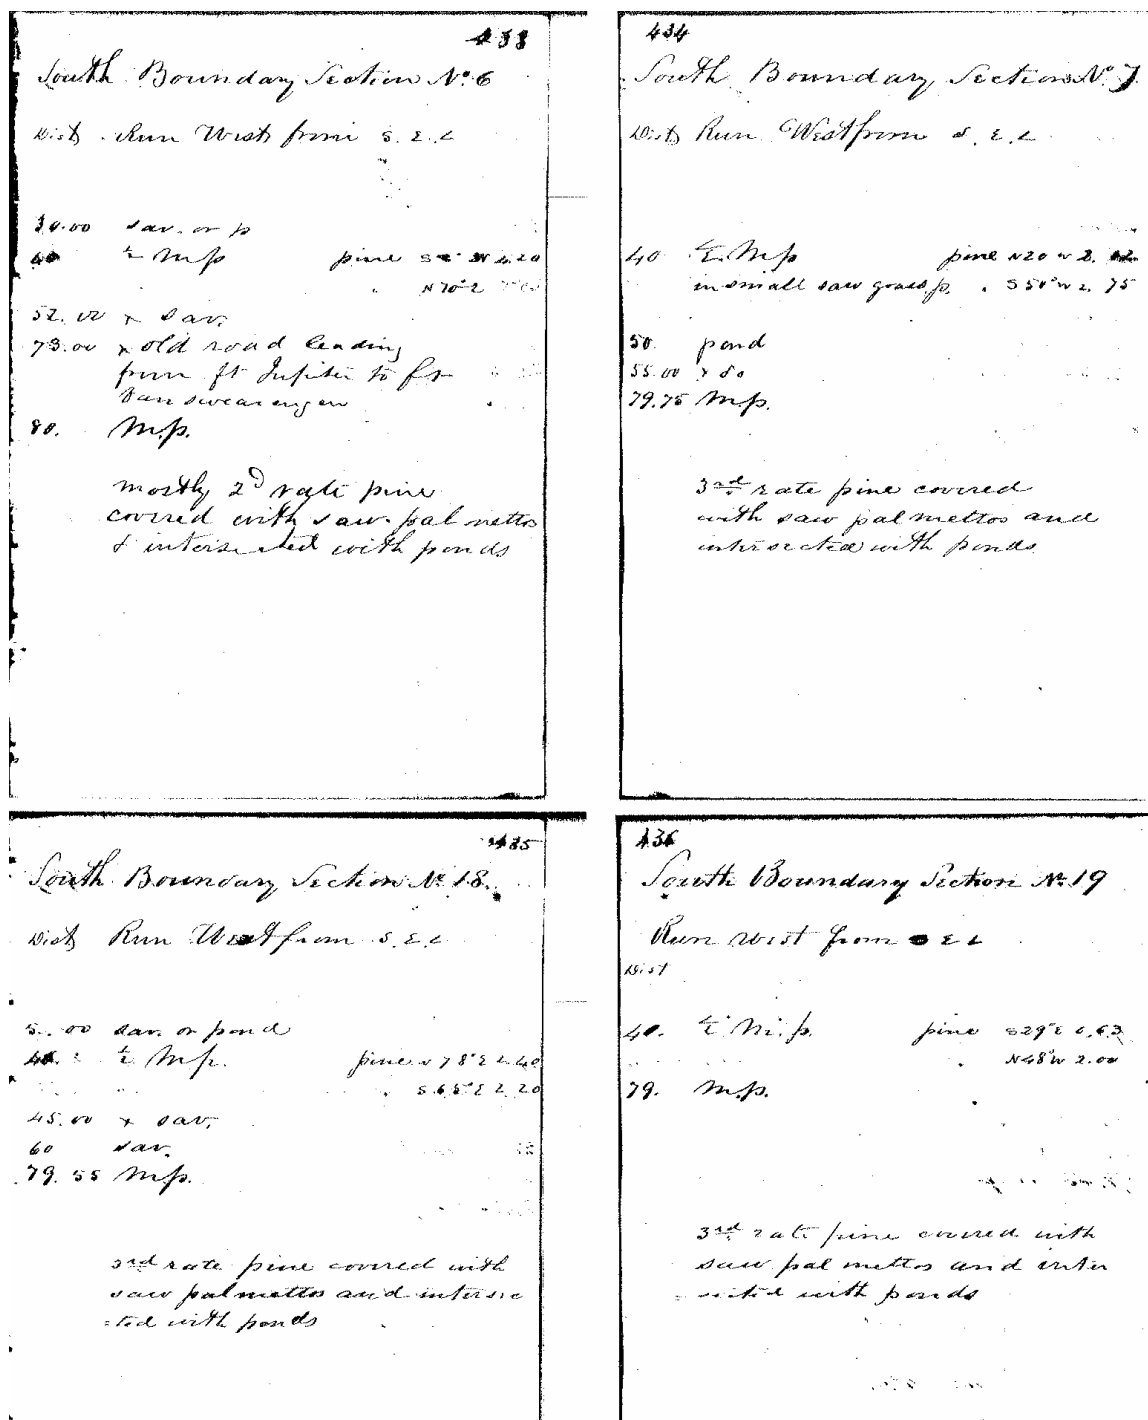 433
South Boundary Section No. 6
Dist Run West from S. E. C
30.00 sav. or p
40 ½ M p pine S W 2.20
N 70 E
52.00 x sav.
73.00 x old road leading
from ft Jupiter to ft
Van swearengen
80. M.p.
mostly 2d rate pine
covered with saw palmettos
& intersected with ponds
434
South Boundary Section No. 7.
Dist Run West from S. E. C
40 ½ M p pine N 20 W 2.
in small saw grass p. " S 50° W 2. 75
50. pond
55.00 x do
79.75 M.p.
3rd rate pine covered
with saw palmettos and
intersected with ponds
435
South Boundary Section No. 18.
Dist Run West from S. E. C
5.00 sav. or pond
40. ½ M p. pine N 78° E 2.40
" S 65° E 2.20
45.00 x sav.
60 sav.
79.55 M p.
3rd rate pine covered with
saw palmettos and interse
cted with ponds
436
South Boundary Section No. 19
Run West from S E C
Dist
40. ½ M. p. pine S 29° E 0.63
" N 48° W 2.00
79. M.p.
3rd rate pine covered with
saw palmettos and inter
sected with ponds